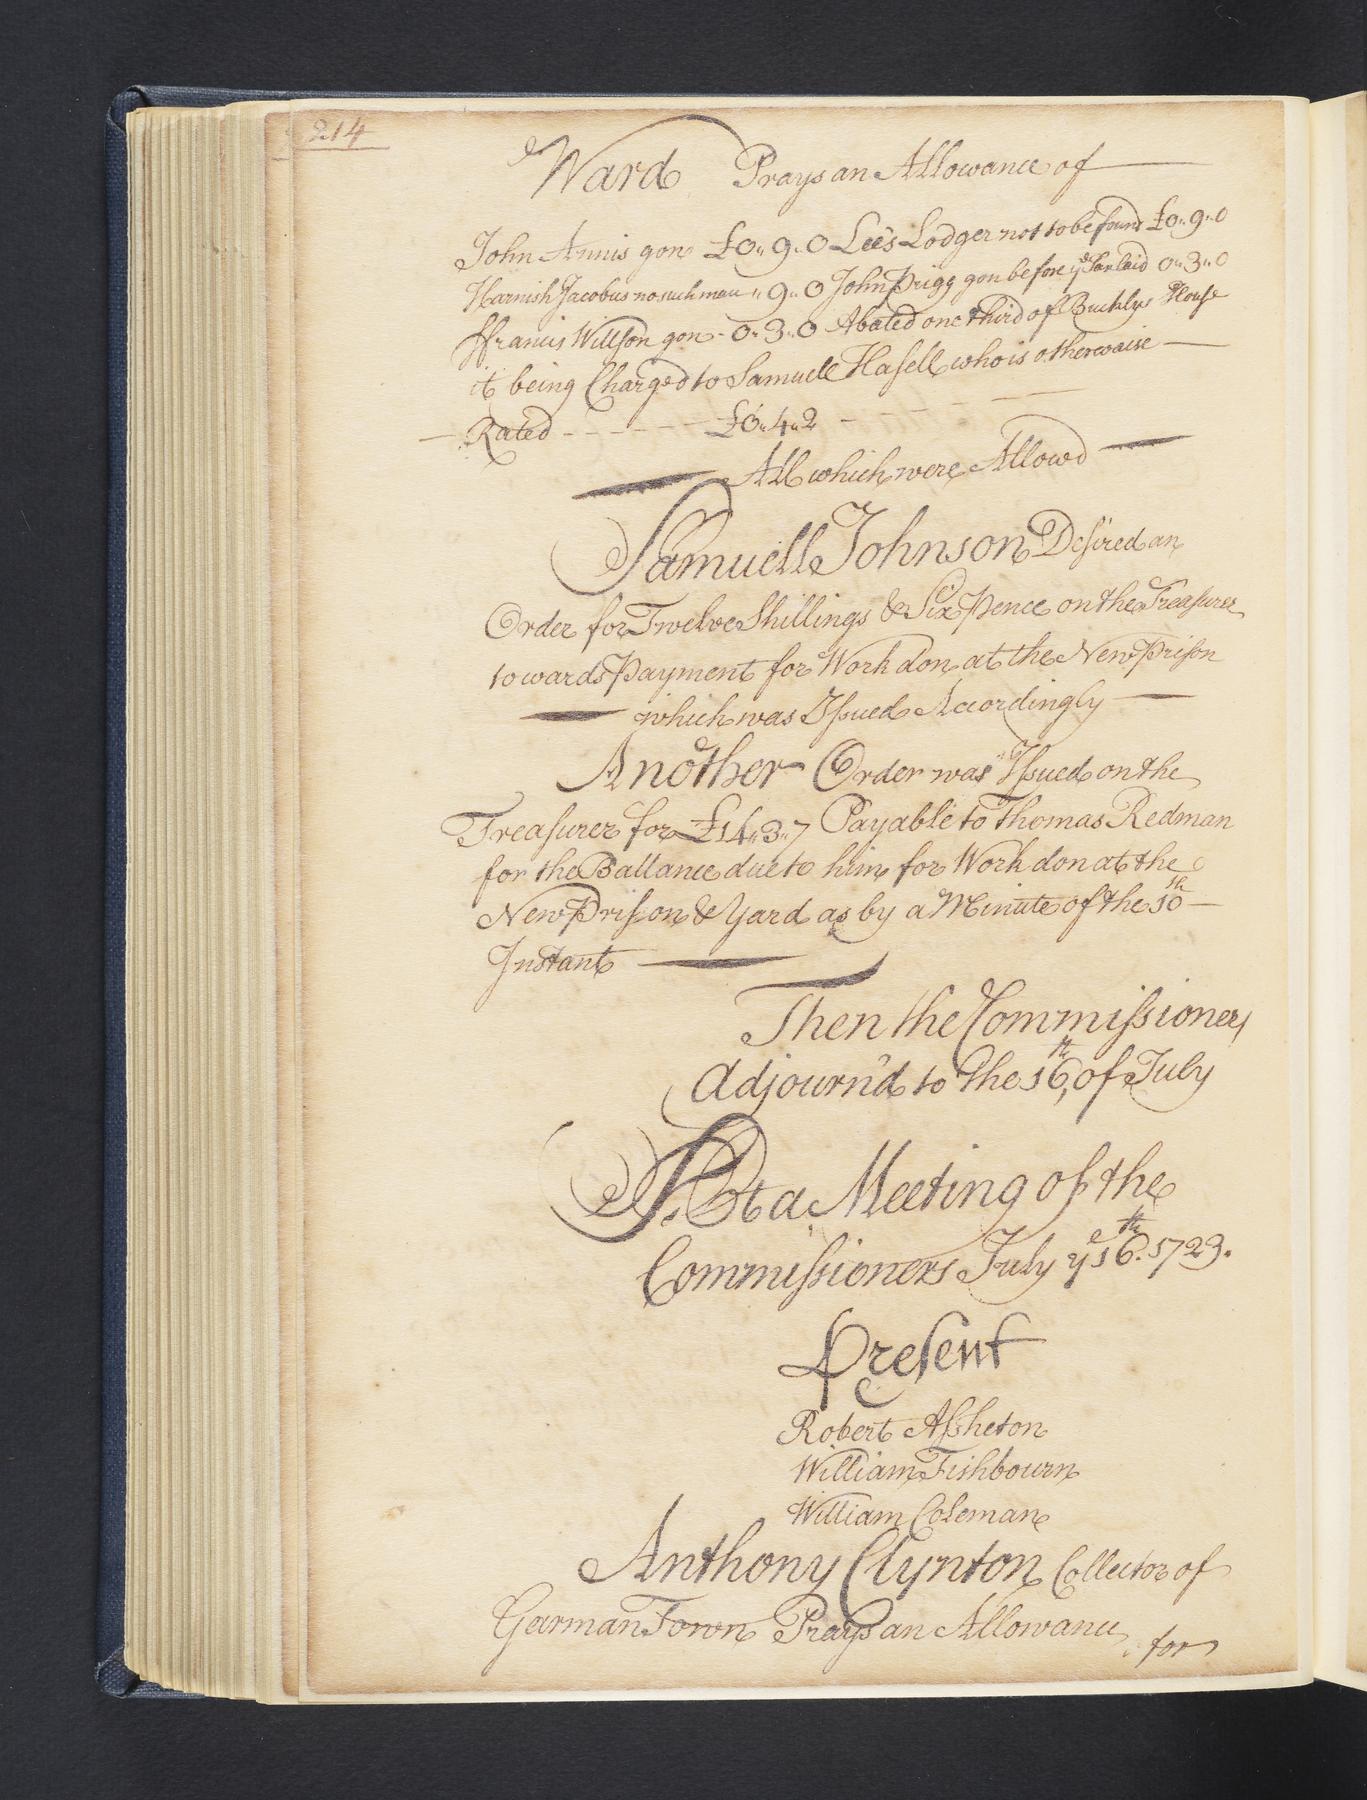 214
Ward Prays an Allowance of
John Annis gon £0„9„0 Lee's Lodger not to be found £0„9„0
Harnish Jacobus no such man „9„0 John Prigg gon before yᵉ Tax laid 0„3„0
ffrancis Willson gon - 0„3„0 Abated one third of Bucklys House
it being Charged to Samuell Hasell who is otherwaise
Rated - - - - - - £0„4„2 - - - - -
All which were Allowd
Samuell Johnson Desired an
Order for Twelve Shillings & Six Pence on the Treasurer
towards Payment for Work don at the New Prison
which was Issued Acordingly
Another Order was Issued on the
Treasurer for £14„3„7 Payable to Thomas Redman
for the Ballance due to him for Work don at the
New Prison & Yard as by a Minute of the 10th
Instant
Then the Commissioners
Adjourn'd to the 16th, of July
At a Meeting of the
Commissioners July yᵉ 16th. 1723.
Present
Robert Assheton
William Fishbourn
William Coleman
Anthony Clynton Collector of
German Town Prays an Allowance
for